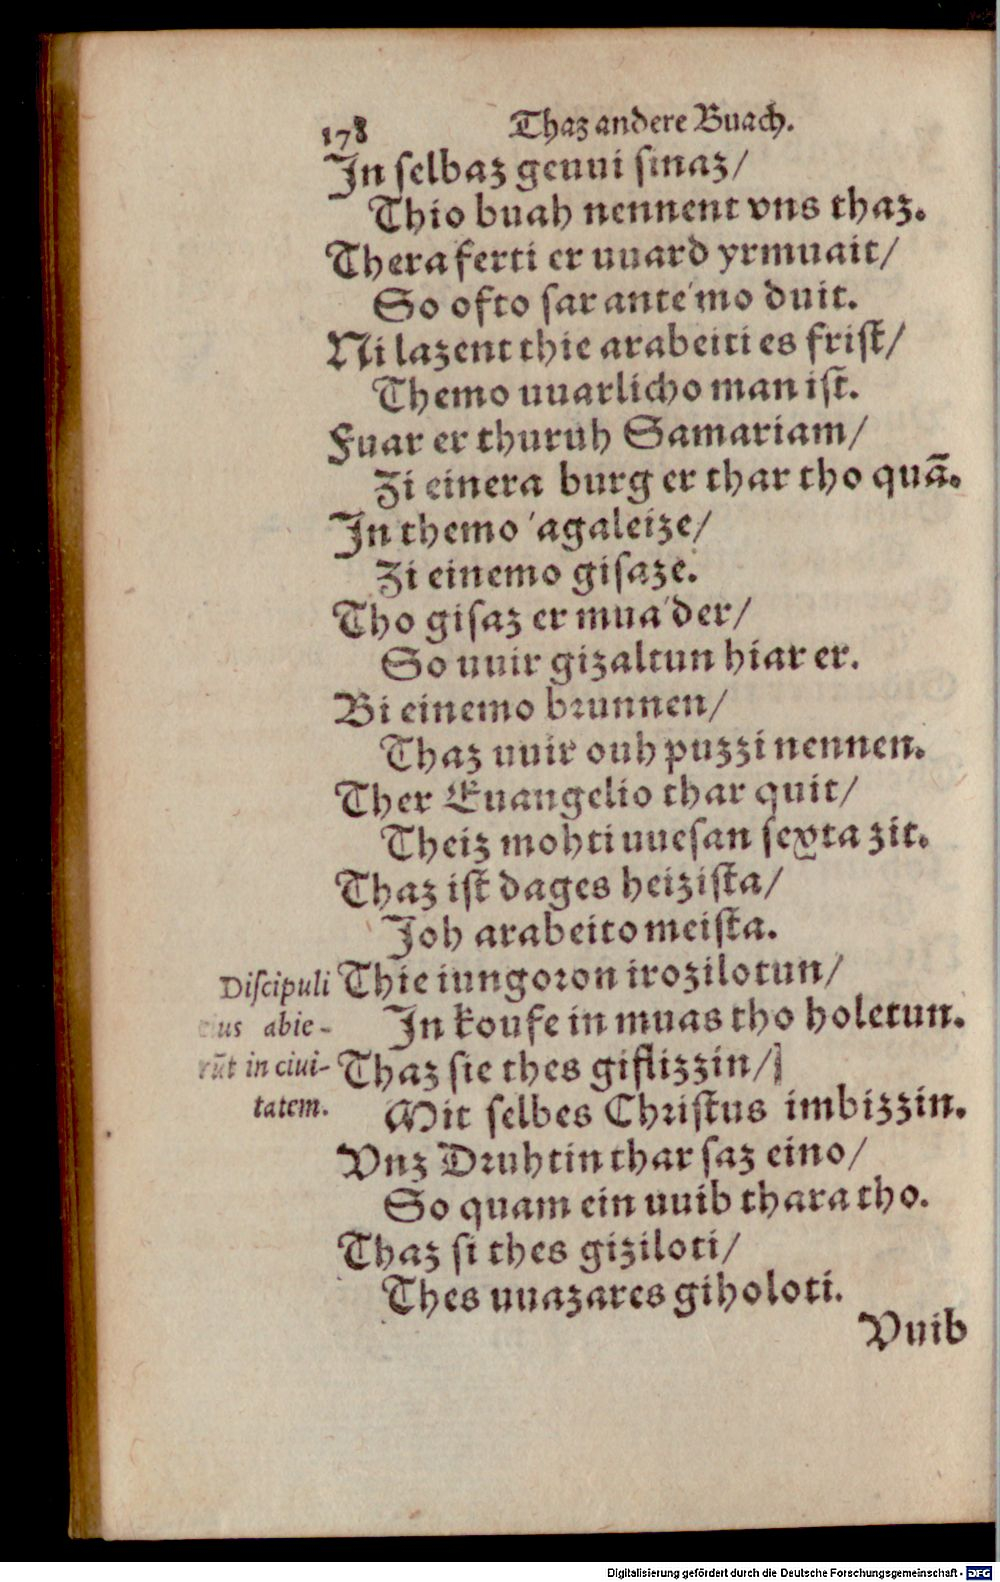 178 Thaz andere Buach.
In selbaz geuui sinaz/
Thio buah nennent vns thaz.
Thera ferti er uuard yrmuait/
So ofto sar ante'mo duit.
Ni lazent thie arabeiti es frist/
Themo uuarlicho man ist.
Fuar er thuruh Samariam/
Zi einera burg er thar tho quā.
In themo 'agaleize/
Zi einemo gisaze.
Tho gisaz er mua'der/
So uuir gizaltun hiar er.
Bi einemo brunnen/
Thaz uuir ouh puzzi nennen.
Ther Euangelio thar quit/
Theiz mohti uuesan sexta zit.
Thaz ist dages heizista/
Joh arabeito meista.
Discipuli
eius abie-
rūt in ciui-
tatem.
Thie iungoron irozilotun/
In koufe in muas tho holetun.
Thaz sie thes giflizzin/]
Mit selbes Christus imbizzin.
Vnz Druhtin thar saz eino/
So quam ein uuib thara tho.
Thaz si thes giziloti/
Thes uuazares giholoti.
Vuib
Digitalisierung gefördert durch die Deutsche Forschungsgemeinschaft - DFG